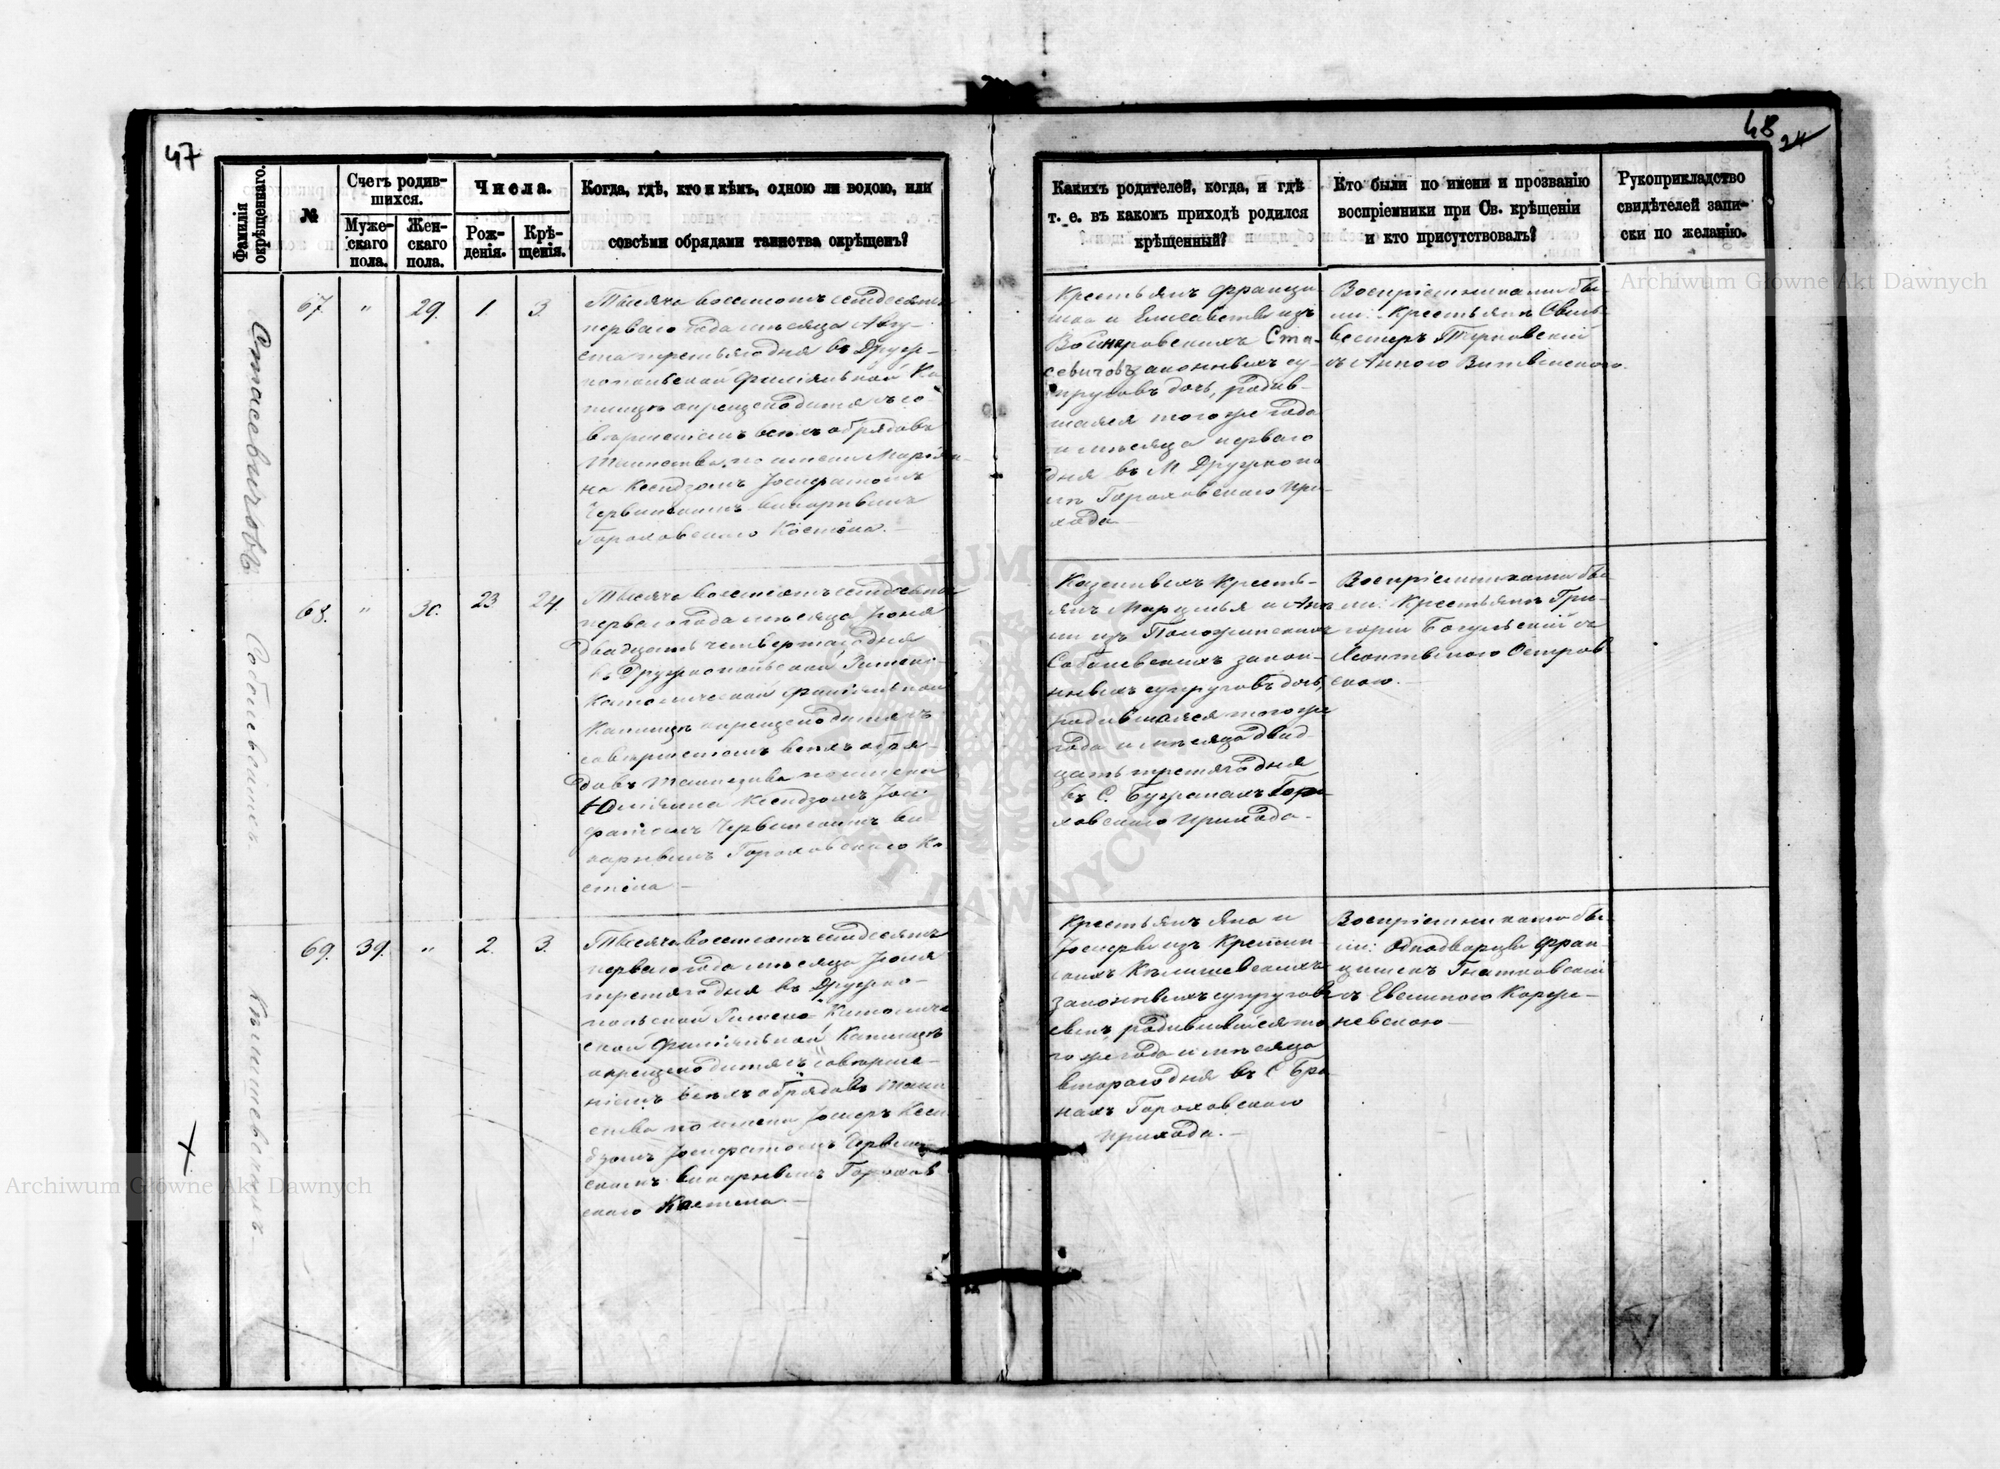 47
48
24
Фамилія
окрѣщеннаго.
№
Счетъ родив-
шихся.
Муже-
скаго
пола.
Жен-
скаго
пола.
Числа.
Рож-
денія.
Крѣ-
щенія.
Когда, гдѣ, кто и кѣмъ, одною ли водою, или
совсѣми обрядами таинства окрѣщенъ?
Какихъ родителей, когда, и гдѣ
т. е. въ какомъ приходѣ родился
крѣщенный?
Кто были по имени и прозванію
воспріемники при Св. крѣщеніи
и кто присутствовалъ?
Рукоприкладство
свидѣтелей запи-
ски по желанію.
Стасевичовъ
67
"
29.
1
3.
Тысяча восемсотъ семдесятъ
перваго года мѣсяца Авгу-
ста третьяго дня въ Друж-
копольской филіяльной Ка
плицѣ окрещено дитя съ со-
вершеніемъ всѣхъ обрядовъ
Таинства, по имени Маріян-
на Ксендзомъ Іосафатомъ
Червинскимъ викарнымъ
Гороховскаго Костёла.
Крестьянъ Францы
шка и Елисаветы изъ
Стa-
севичовъ законныхъ су-
пруговъ дочь, родив-
шаяся того же года
и мѣсяца перваго
дня въ М Дружкопо
лѣ Гороховскаго При-
хода
Воспріемниками бы
ли: Крестьянъ Силь-
вестеръ Турковскій
съ Анною
Соболевскихъ
68.
"
30.
23
24
Тысяча восемсотъ семдесятъ
перваго года мѣсяца Іюня
двадцать четвертаго дня
въ Дружкопольской Римско-
Католической филіяльной
Каплицѣ окрещено дитя съ
совершеніемъ всѣхъ обря-
довъ Таинства по имени
Юліянна Ксендзомъ Іоса
фатомъ Червинскимъ ви
карнымъ Гороховскаго Ко
стёла
Казенныхъ Кресть-
янъ и Ан
ны изъ
Соболевскихъ закон-
ныхъ супруговъ дочь,
родившаяся того же
года и мѣсяца двад-
цать третяго дня
въ С. Бужанахъ Горо
ховскаго Прихода.
Воспріемниками бы
ли: Крестьянъ Гри-
горій съ
Остров
скою.
69.
39.
"
2.
3.
Тысяча восемсотъ семдесятъ
перваго года мѣсяца Іюля
третяго дня въ Дружко-
польской Римско Католиче
ской филіяльной Каплицѣ
окрещено дитя съ соверше-
ніемъ всѣхъ обрядовъ Таин
ства по имени Іосифъ Ксен
дзомъ Іосафатомъ Червин
скимъ викарнымъ Горохов
скаго Костела.
Крестьянъ Яна и
Іозефы изъ
законныхъ супруговъ
сынъ, родившійся то
го же года и мѣсяца
втораго дня въ С
Гороховскаго
Прихода.
Воспріемниками бы
ли: Однодворцы Фран
цишекъ Гнатковскій
съ Евелиною Корже-
невскою
Archiwum Główne Akt Dawnych
Archiwum Główne Akt Dawnych